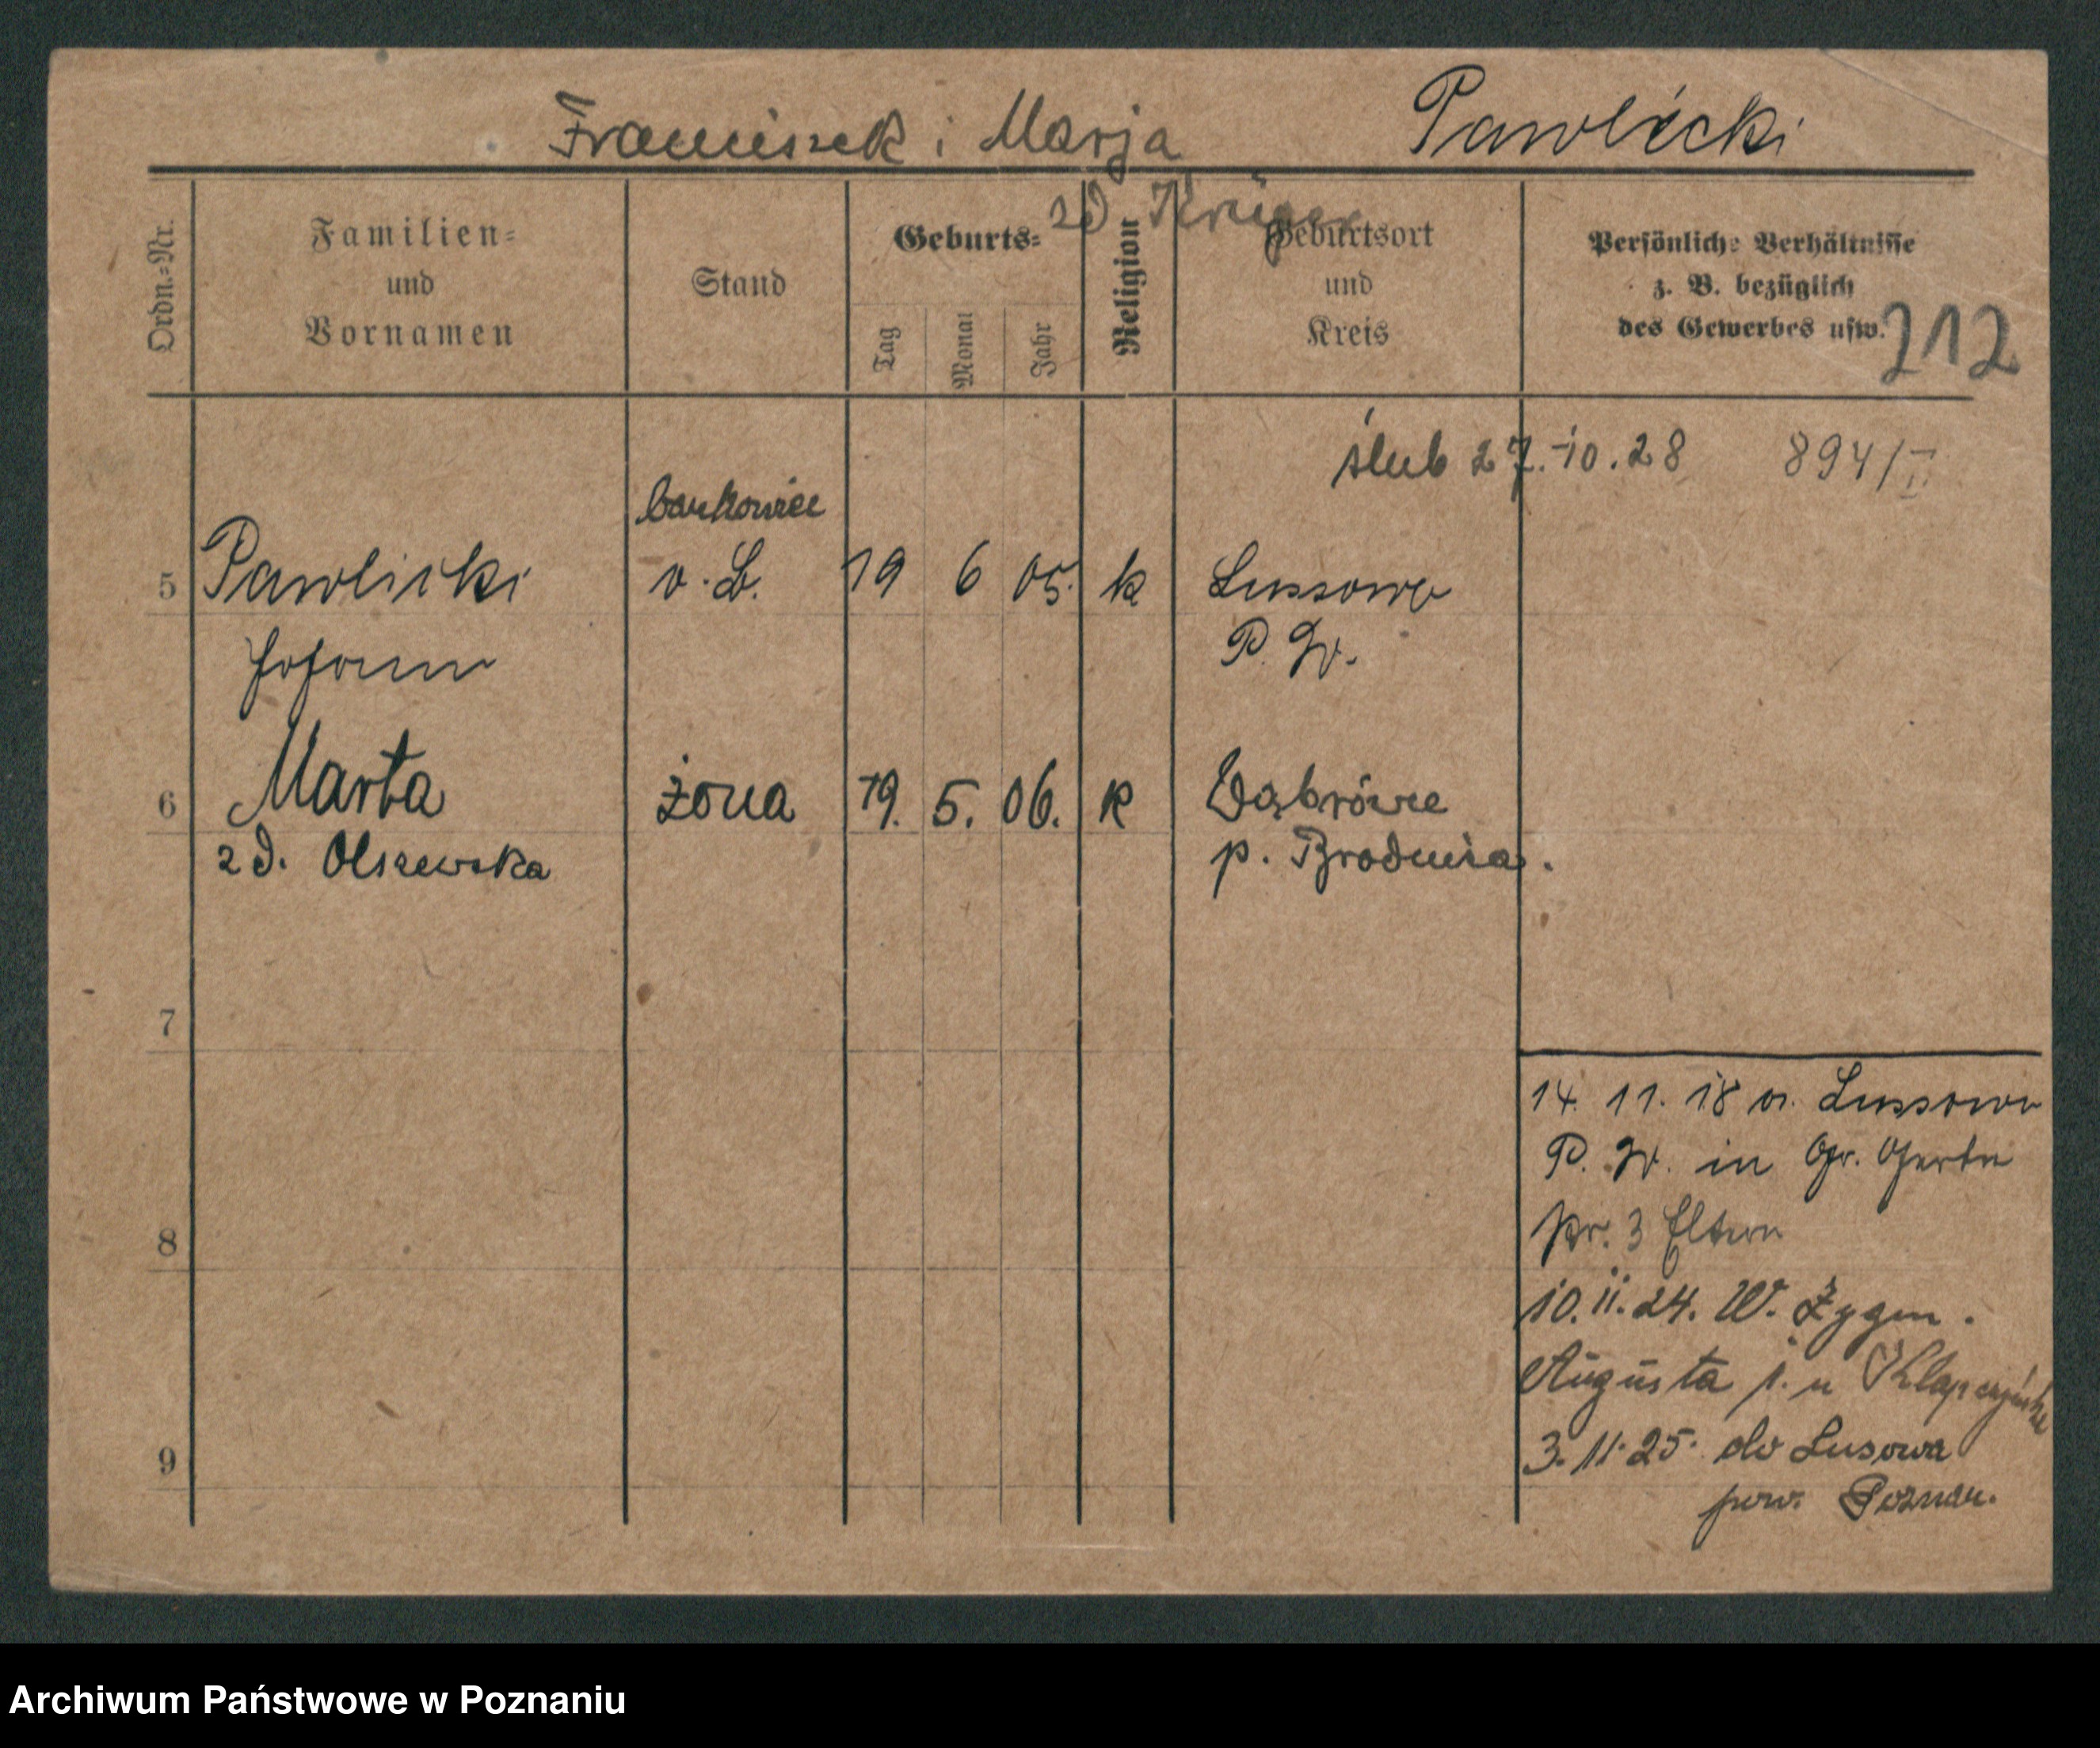 Franciszek i Marja Pawlicki
zd Krüger
Ordn.-Nr.
Familien-
und
Vornamen
Stand
Geburts-
Tag
Monat
Jahr
Religion
Geburtsort
und
Kreis
Persönliche Verhältnisse
z. B. bezüglich
des Gewerbes usw.
212
ślub 27.10.28 894/II
bankowiec
5 Pawlicki o. B. 19 6 05. k Lussowo
Johann P. W.
6 Marta żona 19. 5. 06. k Wąbrówie
zd. Olszewska p. Brodnica.
7
8
9
14. 11. 18 a. Lussowo
P. W. in Gr. Gerber
str. 3 Eltern
10.11.24. W. Zygm.
Augusta 1. u Klapczyńska
3.11.25. do Lusowa
pow. Poznań.
Archiwum Państwowe w Poznaniu